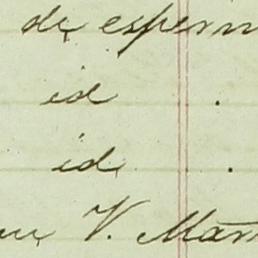 de esperm
id .
id .
V. Mar